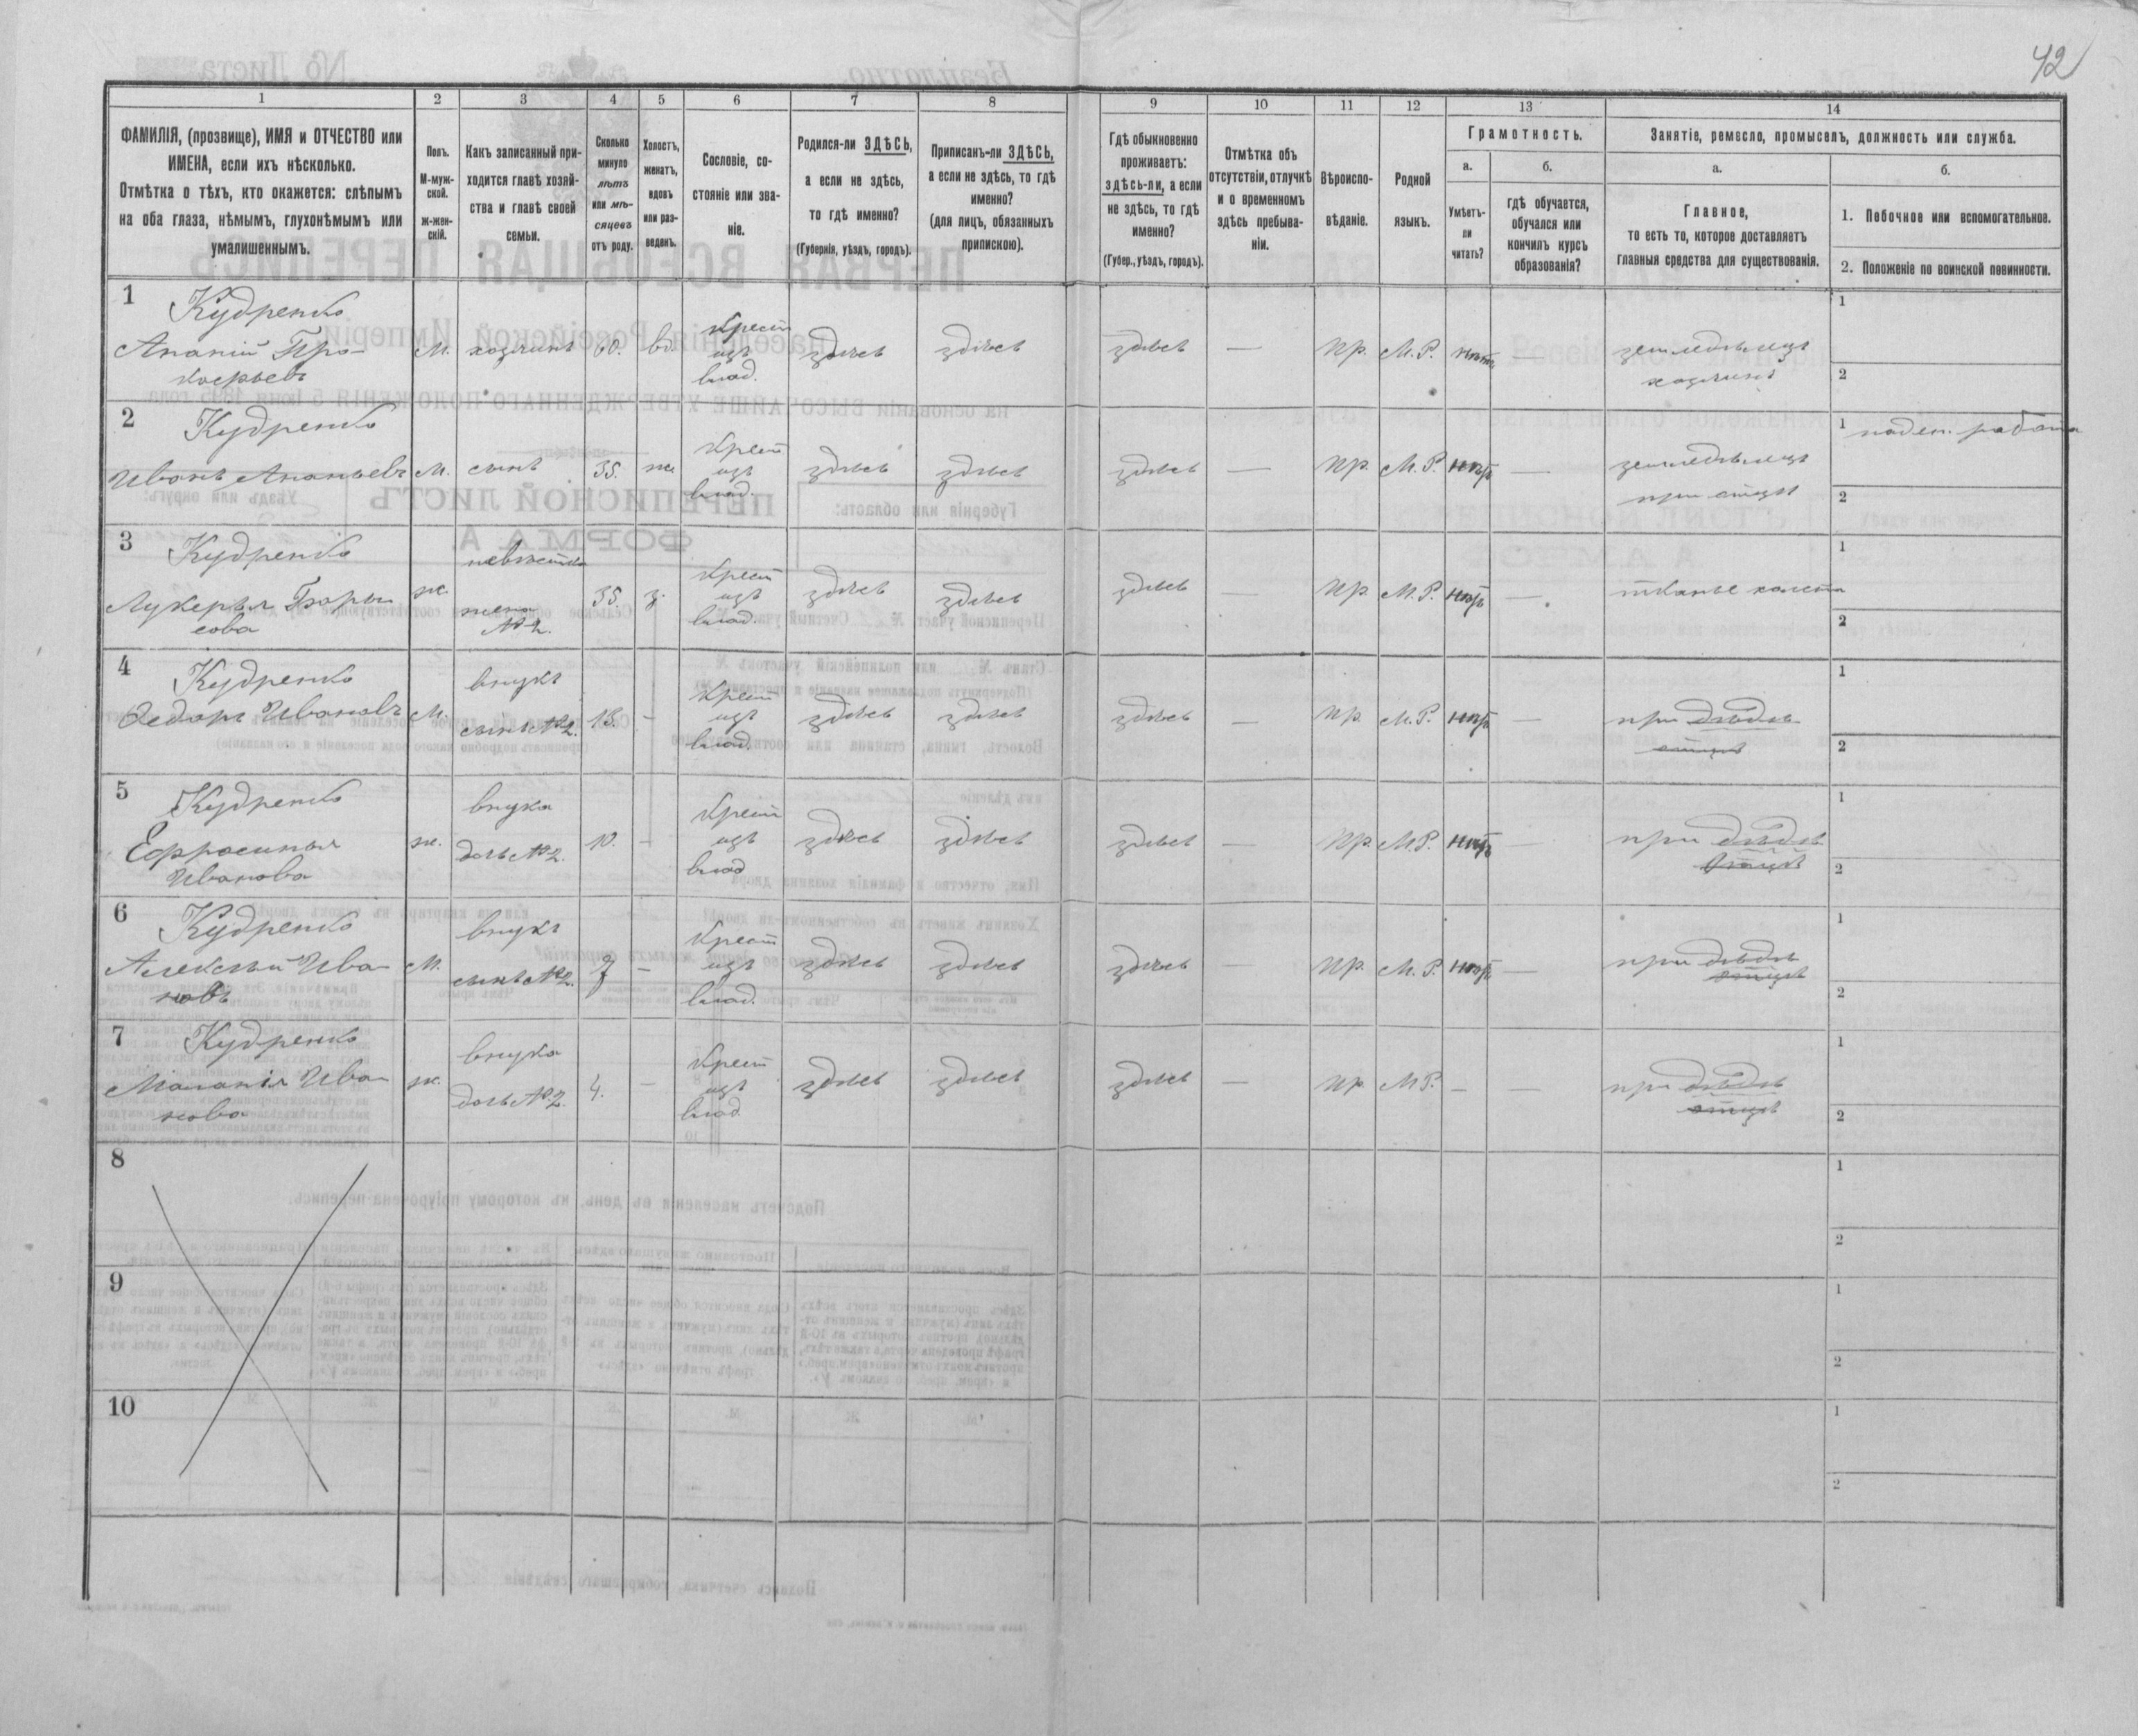 42
1 2 3 4 5 6 7 8 9 10 11 12 13 14
ФАМИЛІЯ, (прозвище), ИМЯ и ОТЧЕСТВО или
ИМЕНА, если ихъ нѣсколько.
Отмѣтка о тѣхъ, кто окажется: слѣпымъ
на оба глаза, нѣмымъ, глухонѣмымъ или
умалишеннымъ.
Полъ.
М-муж-
ской.
Ж-жен-
скій.
Какъ записанный при-
ходится главѣ хозяй-
ства и главѣ своей
семьи.
Сколько
минуло
лѣтъ
или мѣ-
сяцевъ
отъ роду.
Холостъ,
женатъ,
вдовъ
или раз-
веденъ.
Сословіе, со-
стояніе или зва-
ніе.
Родился-ли ЗДѢСЬ,
а если не здѣсь,
то гдѣ именно?
(Губернія, уѣздъ, городъ).
Приписанъ-ли ЗДѢСЬ,
а если не здѣсь, то гдѣ
именно?
(для лицъ, обязанныхъ
припискою).
Гдѣ обыкновенно
проживаетъ:
здѣсь-ли, а если
не здѣсь, то гдѣ
именно?
(Губер., уѣздъ, городъ).
Отмѣтка объ
отсутствіи, отлучкѣ
и о временномъ
здѣсь пребыва-
ніи.
Вѣроиспо-
вѣданіе.
Родной
языкъ.
Грамотность.
а.
Умѣетъ-
ли
читать?
б.
гдѣ обучается,
обучался или
кончилъ курсъ
образованія?
Занятіе, ремесло, промыселъ, должность или служба.
а.
Главное,
то есть то, которое доставляетъ
главныя средства для существованія.
б.
1. Побочное или вспомогательное.
2. Положеніе по воинской повинности.
1 Кудренко
Ананій Про-
кофьевъ
М. хозяинъ 60. вд. Крест
изъ
влад. здѣсь здѣсь здѣсь — пр. М.Р. нѣтъ — земледѣлецъ
хозяинъ
1
2
2 Кудренко
Иванъ Ананьевъ М. сынъ 35. ж Крест
изъ
влад. здѣсь здѣсь здѣсь — пр. М.Р. нѣтъ — земледѣлецъ
при отцѣ
1 поден. работа
2
3 Кудренко
Лукерья
ж. невѣстка
жена
№ 2. 35. з. Крест
изъ
влад. здѣсь здѣсь здѣсь — пр. М.Р. нѣтъ — тканье холста
1
2
4 Кудренко
Ѳедоръ Ивановъ М. внукъ
сынъ №2. 13. — Крест
изъ
влад. здѣсь здѣсь здѣсь — пр. М.Р. нѣтъ — при дѣдѣ
отцѣ
1
2
5 Кудренко
Ефросинья
Иванова
ж. внука
дочь №2. 10. — Крест
изъ
влад здѣсь здѣсь здѣсь — пр. М.Р. нѣтъ — при дѣдѣ
отцѣ
1
2
6 Кудренко
Алексѣй Ива-
новъ
М. внукъ
сынъ №2. 7 — Крест
изъ
влад. здѣсь здѣсь здѣсь — пр. М.Р. нѣтъ — при дѣдѣ
отцѣ
1
2
7 Кудренко
Маланія Ива-
нова
ж. внука
дочь №2. 4. — Крест
изъ
влад здѣсь здѣсь здѣсь — пр. М.Р. — — при дѣдѣ
отцѣ
1
2
8
1
2
9
1
2
10
1
2